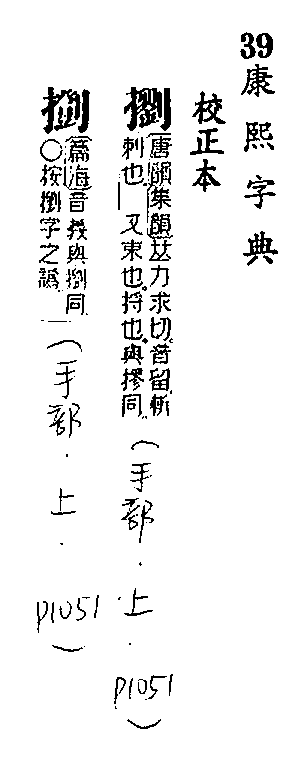 39康熙字典
校正本
劉 唐韻集韻𠀤力求切音留斫
刺也 又束也捋也與摎同
(手部.上.P1051)
篇海音義與㨨同
○按㨨字之譌
(手部.上.P1051)